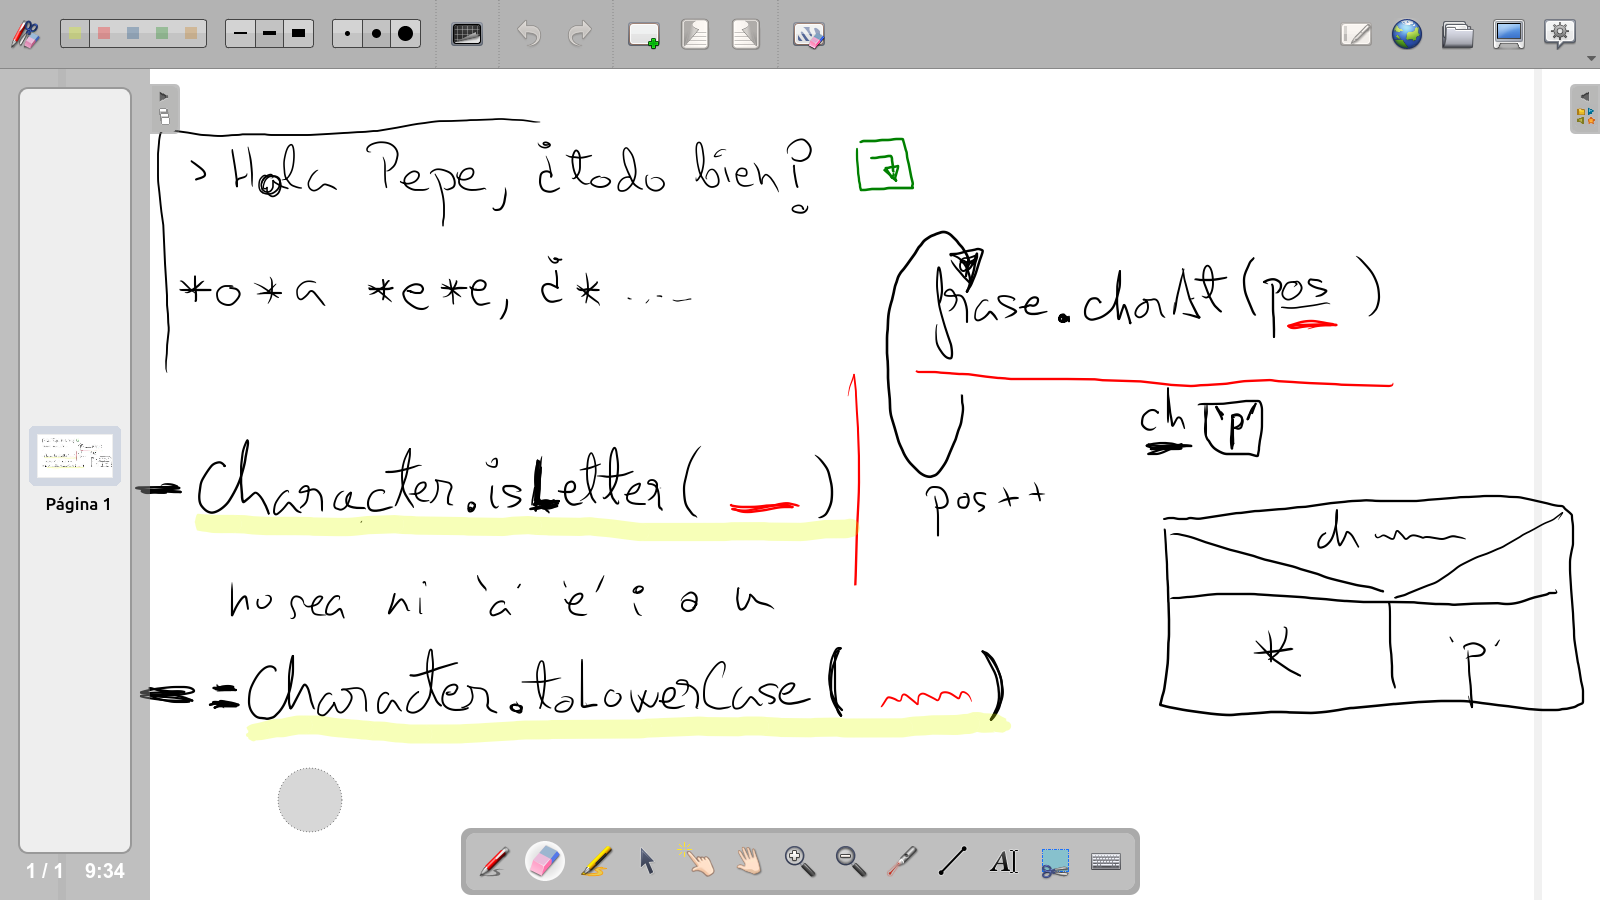 > Hola Pepe, ¿todo bien?
*o*a *e*e, ¿* ....
frase.charAt(pos)
ch 'p'
pos++
Character.isLetter( )
no sea ni 'a' 'e' i o u
= Character.toLowerCase( )
ch
* 'p'
Página 1
1 / 1 9:34
AI